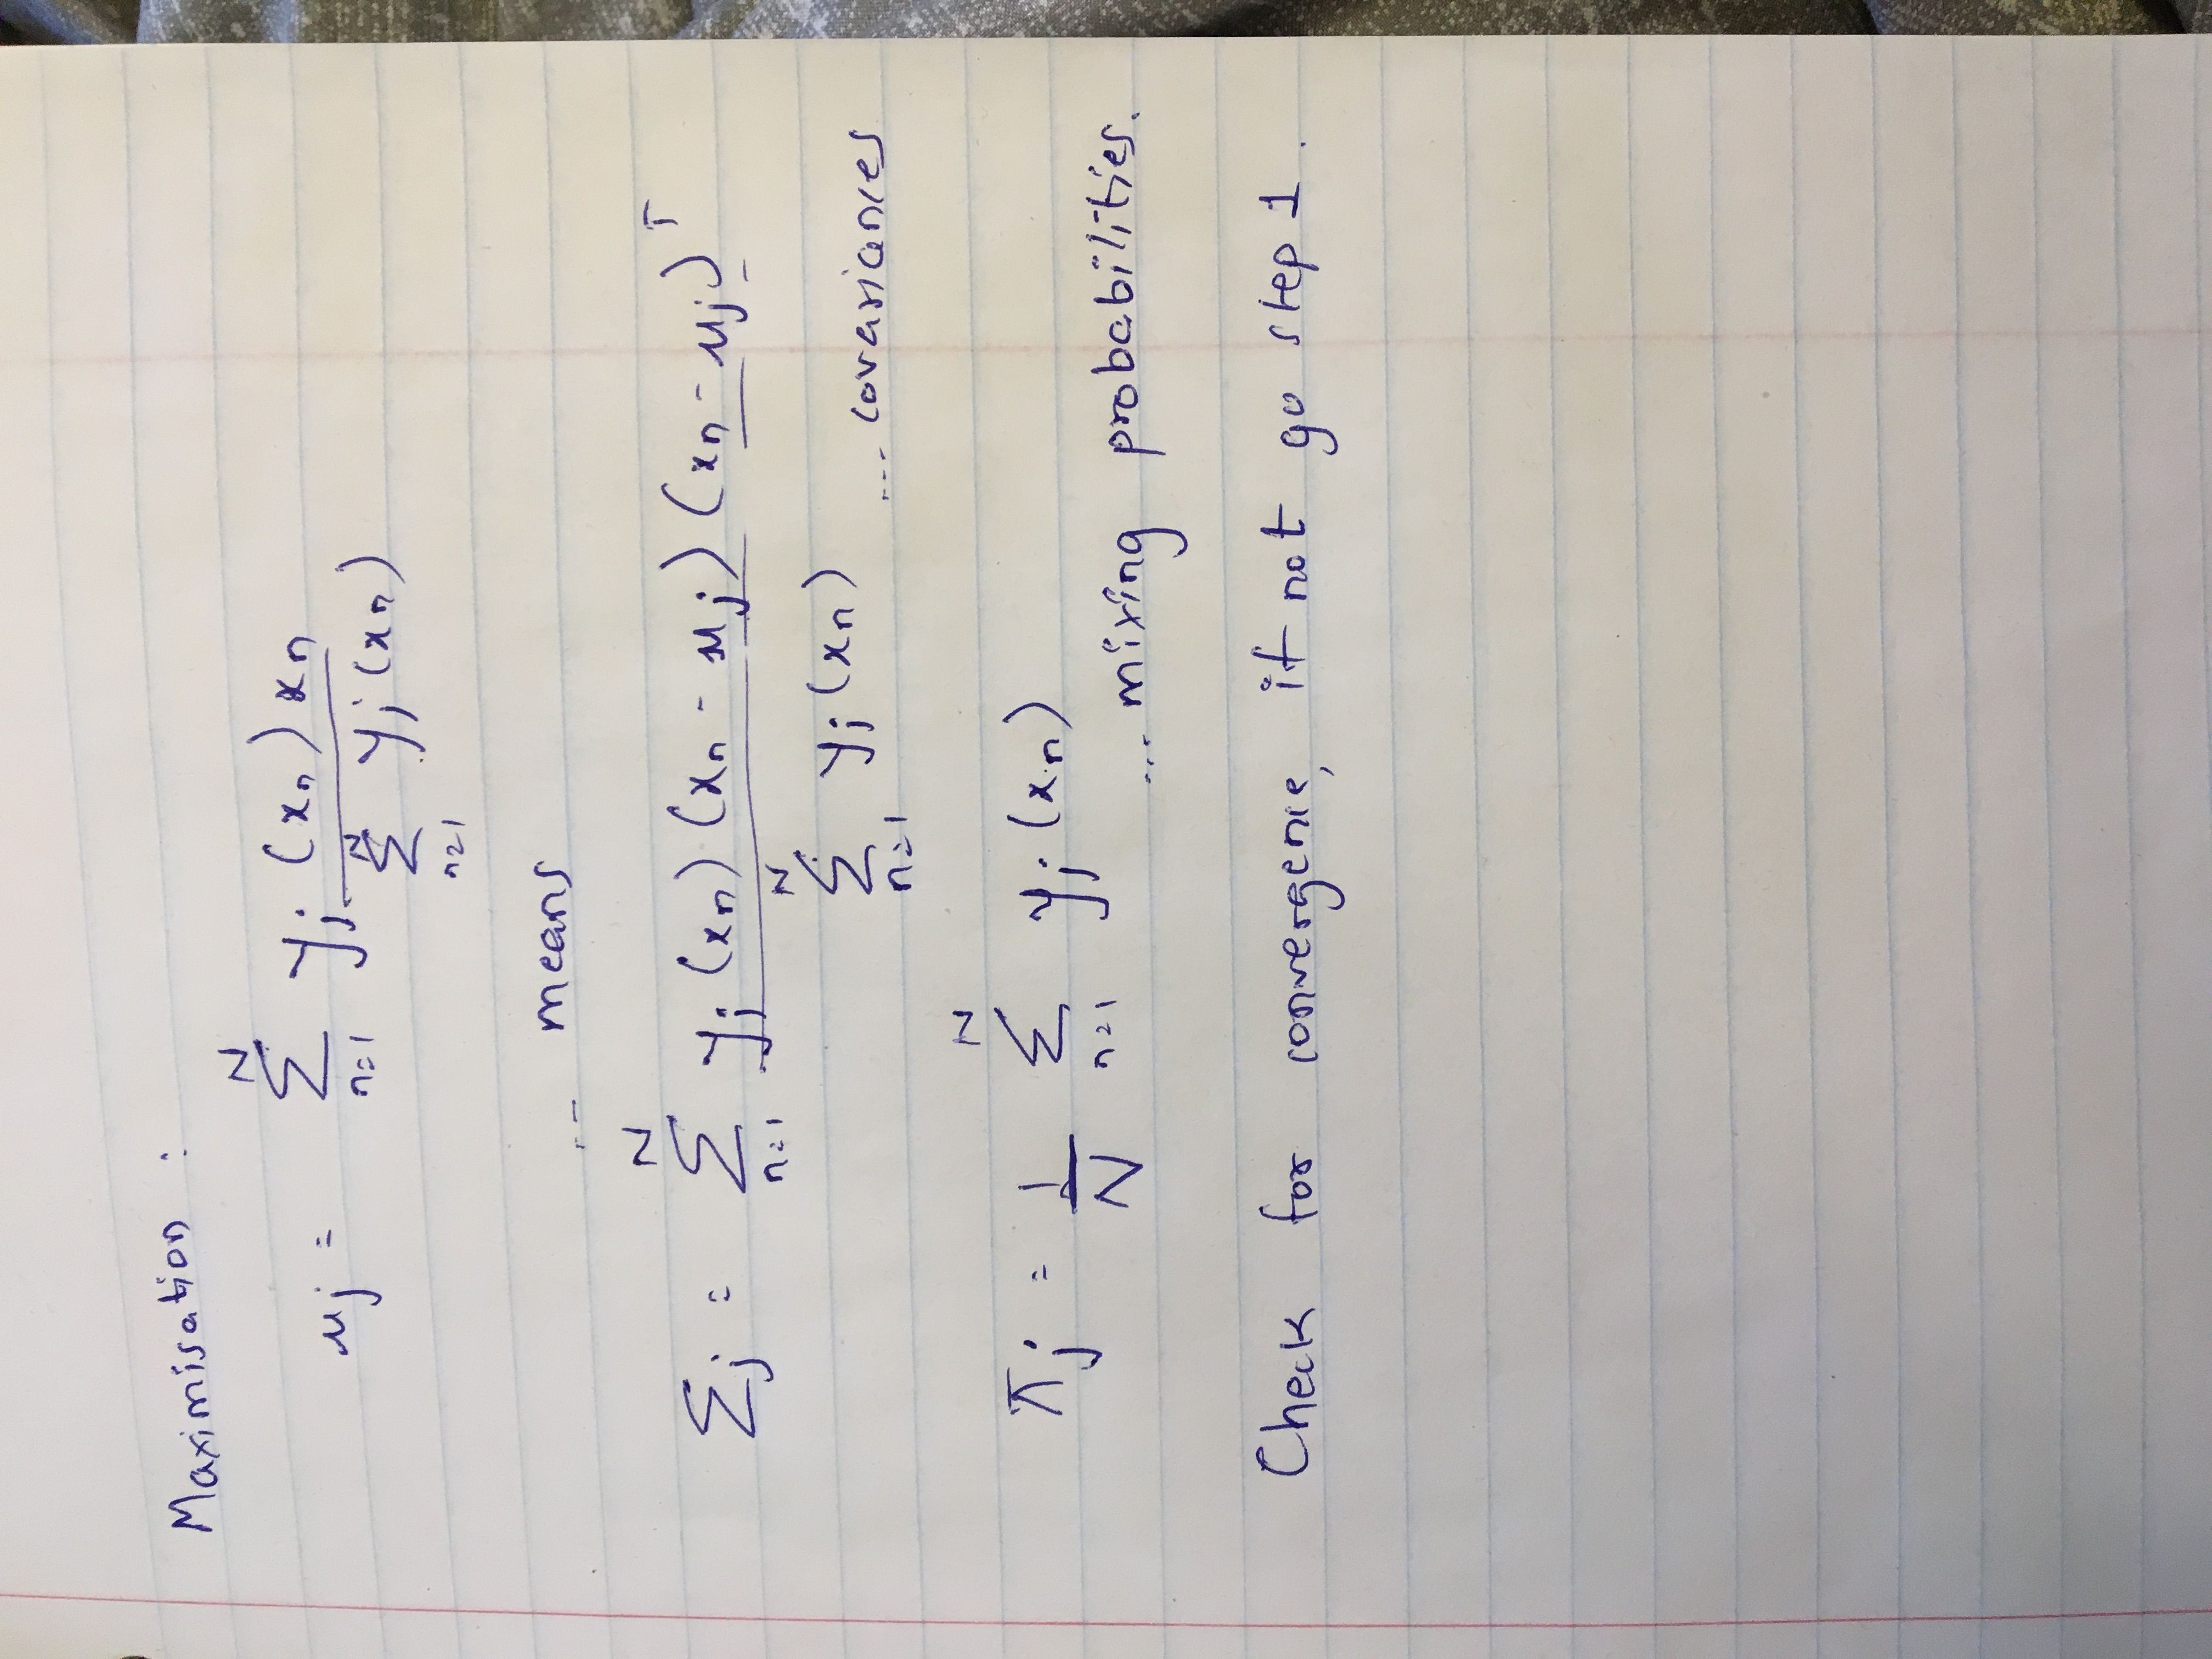 Maximisation :
μj = N Σ n=1 yj (xn) xn
N Σ n=1 yj (xn)
... means
Σj = N Σ n=1 yj (xn) (xn - μj) (xn - μj)T
N Σ n=1 yj (xn) ... covariances
πj = 1/N N Σ n=1 yj (xn)
... mixing probabilities.
Check for convergence, if not go step 1.